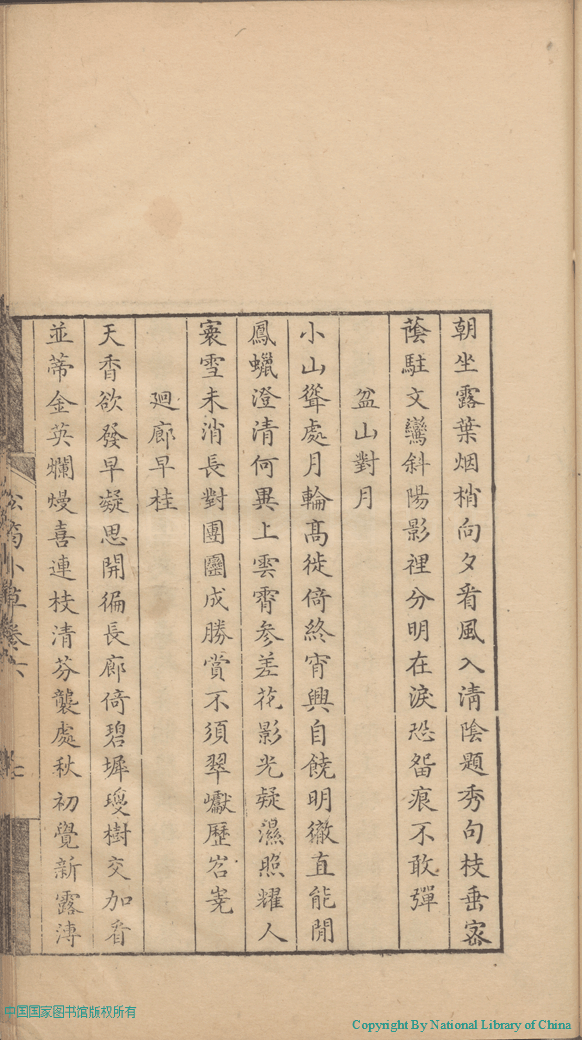 朝坐露葉烟梢向夕看風入清陰題秀句枝垂宻
蔭駐文鸞斜陽影裡分明在淚恐畱痕不敢彈
盆山對月
小山聳處月輪髙徙倚終宵興自饒明徹直能閒
鳳蠟澄清何異上雲霄參差花影光疑濕照耀人
寰雪未消長對團圞成勝賞不須翠巘歷岧嶤
廻廊早桂
天香欲發早凝思開徧長廊倚碧墀瓊樹交加看
並蒂金英爛熳喜連枝清芬襲處秋初覺新露漙
松筠小草卷六
七
中国国家图书馆版权所有
Copyright By National Library of China